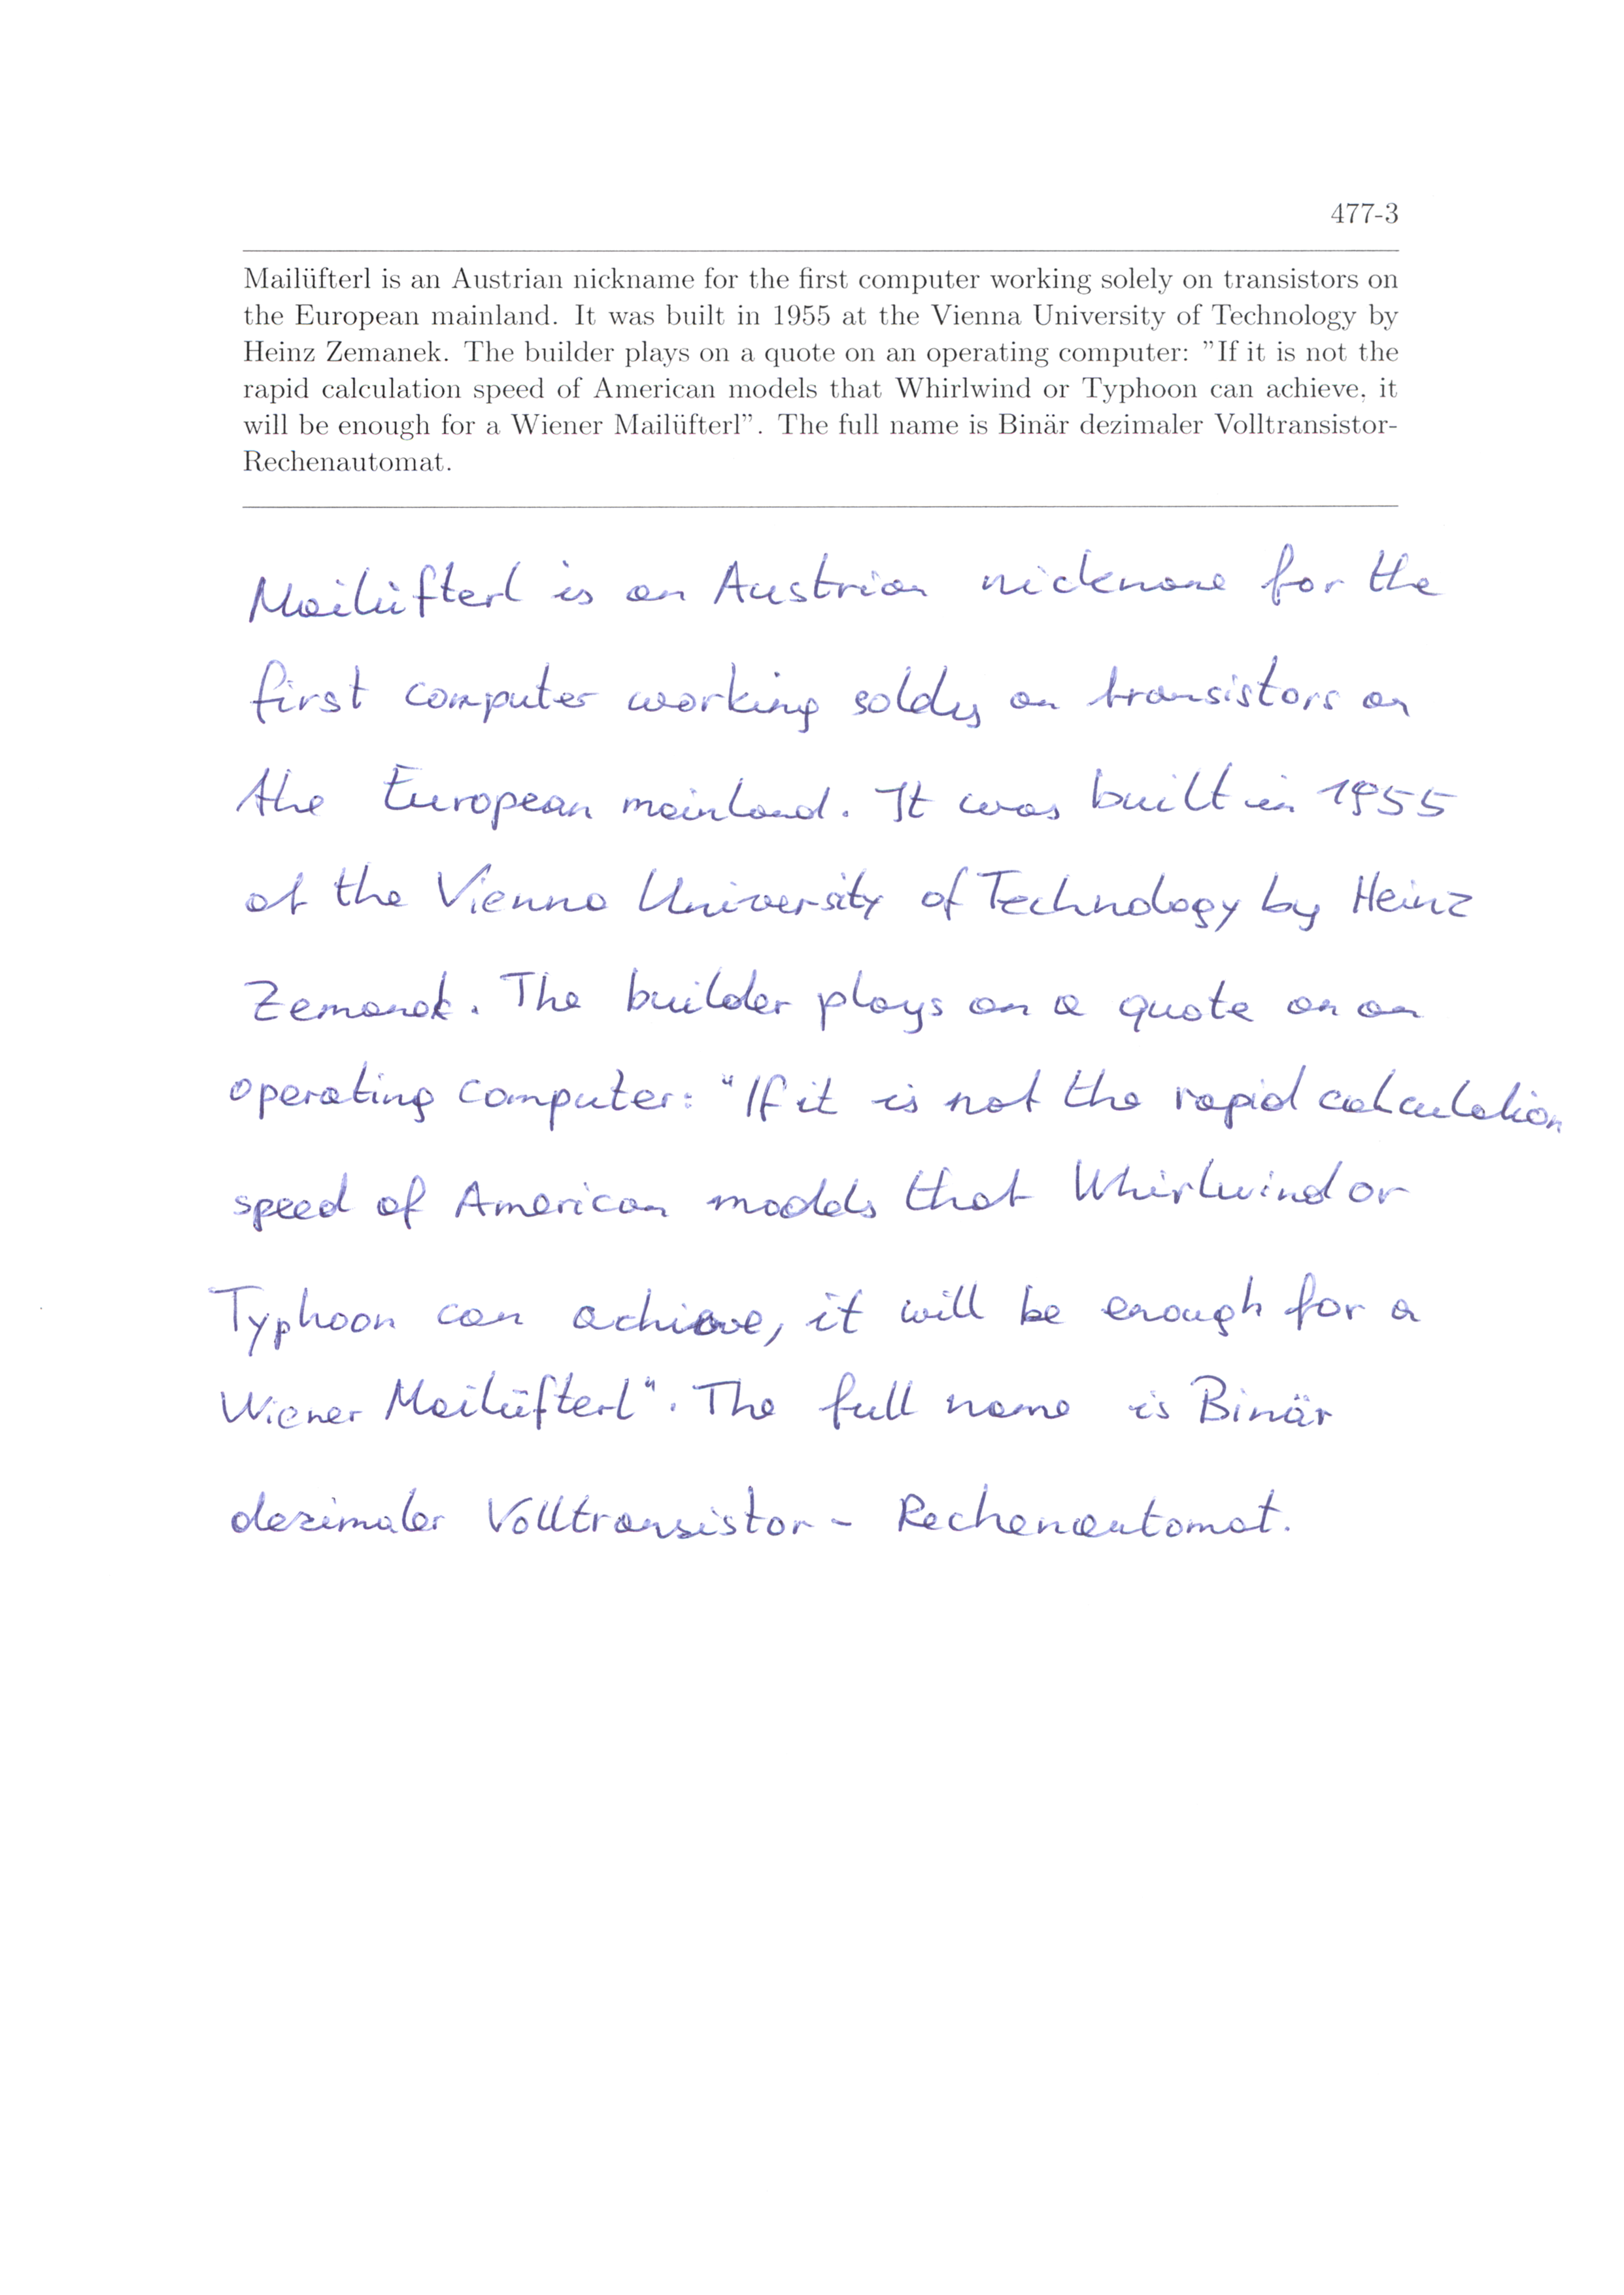 477-3
Mailüfterl is an Austrian nickname for the first computer working solely on transistors on
the European mainland. It was built in 1955 at the Vienna University of Technology by
Heinz Zemanek. The builder plays on a quote on an operating computer: ”If it is not the
rapid calculation speed of American models that Whirlwind or Typhoon can achieve, it
will be enough for a Wiener Mailüfterl”. The full name is Binär dezimaler Volltransistor-
Rechenautomat.
Mailüfterl is an Austrian nickname for the
first computer working solely on transistors on
the European mainland. It was built in 1955
at the Vienna University of Technology by Heinz
Zemanek. The builder plays on a quote on an
operating computer: "If it is not the rapid calculation
speed of American models that Whirlwind or
Typhoon can achieve, it will be enough for a
Wiener Mailüfterl". The full name is Binär
dezimaler Volltransistor- Rechenautomat.